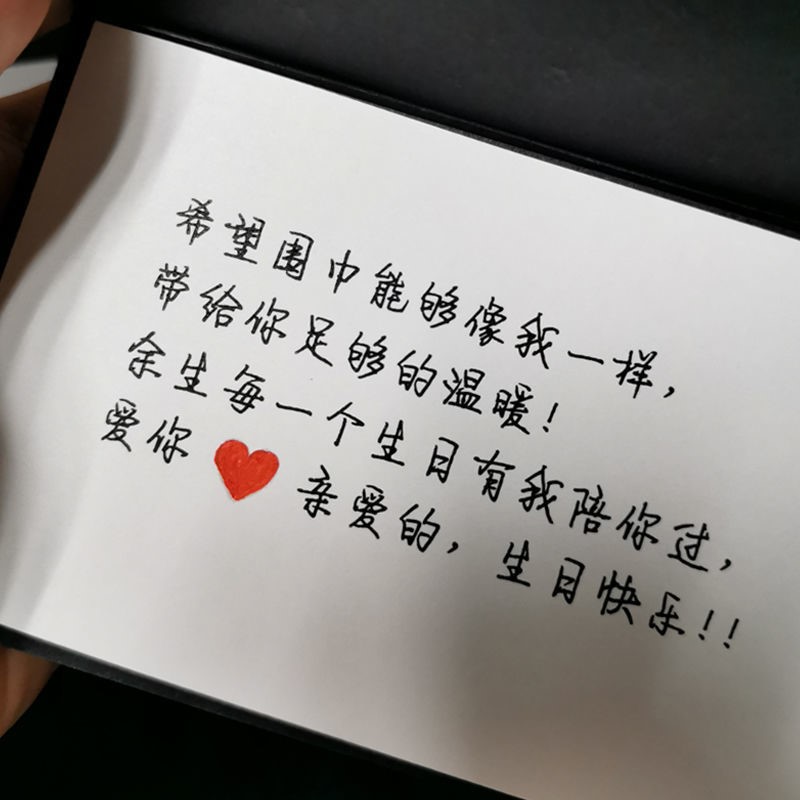 希望围巾能够像我一样，
带给你足够的温暖！
余生每一个生日有我陪你过，
爱你❤亲爱的，生日快乐！！